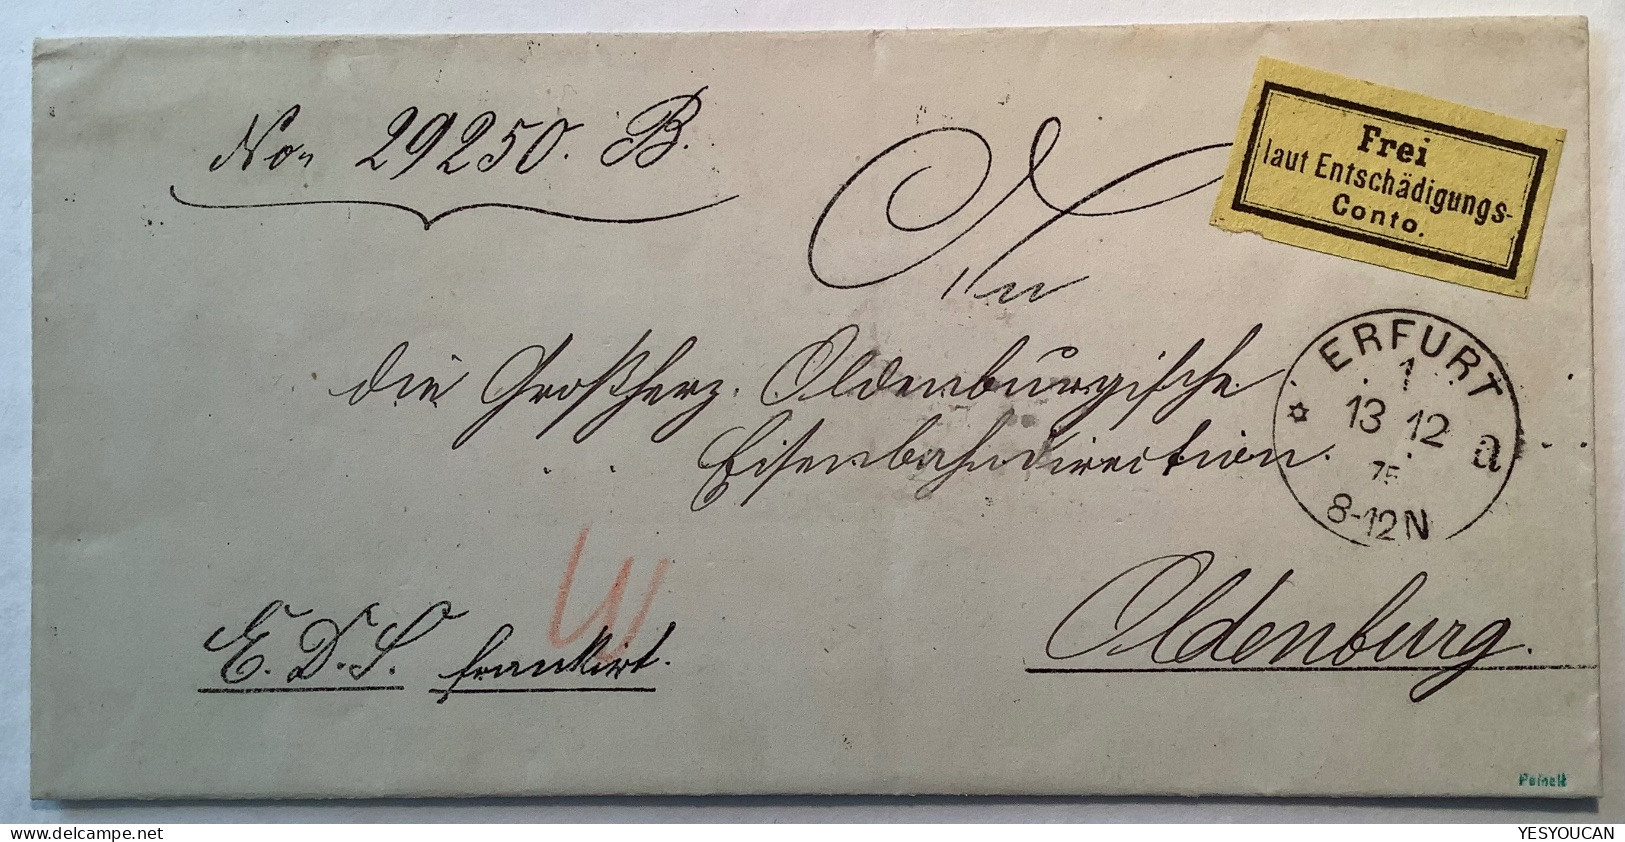 No. 29250. B.
Frei
laut Entschädigungs-
Conto.
An
die Großherz. Oldenburgische
Eisenbahndirection.
ERFURT
1
13 12
a
75
8-12N
E.D.S. frankirt.
Oldenburg.
delcampe.net
YESYOUCAN